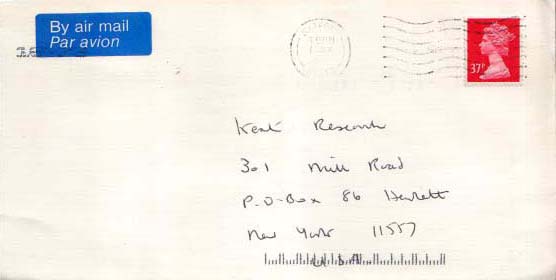 By air mail
Par avion
37P
Kent Research
301 Mill Road
P-O-Box 86 Hewlett
New York 11557
U.S.A.